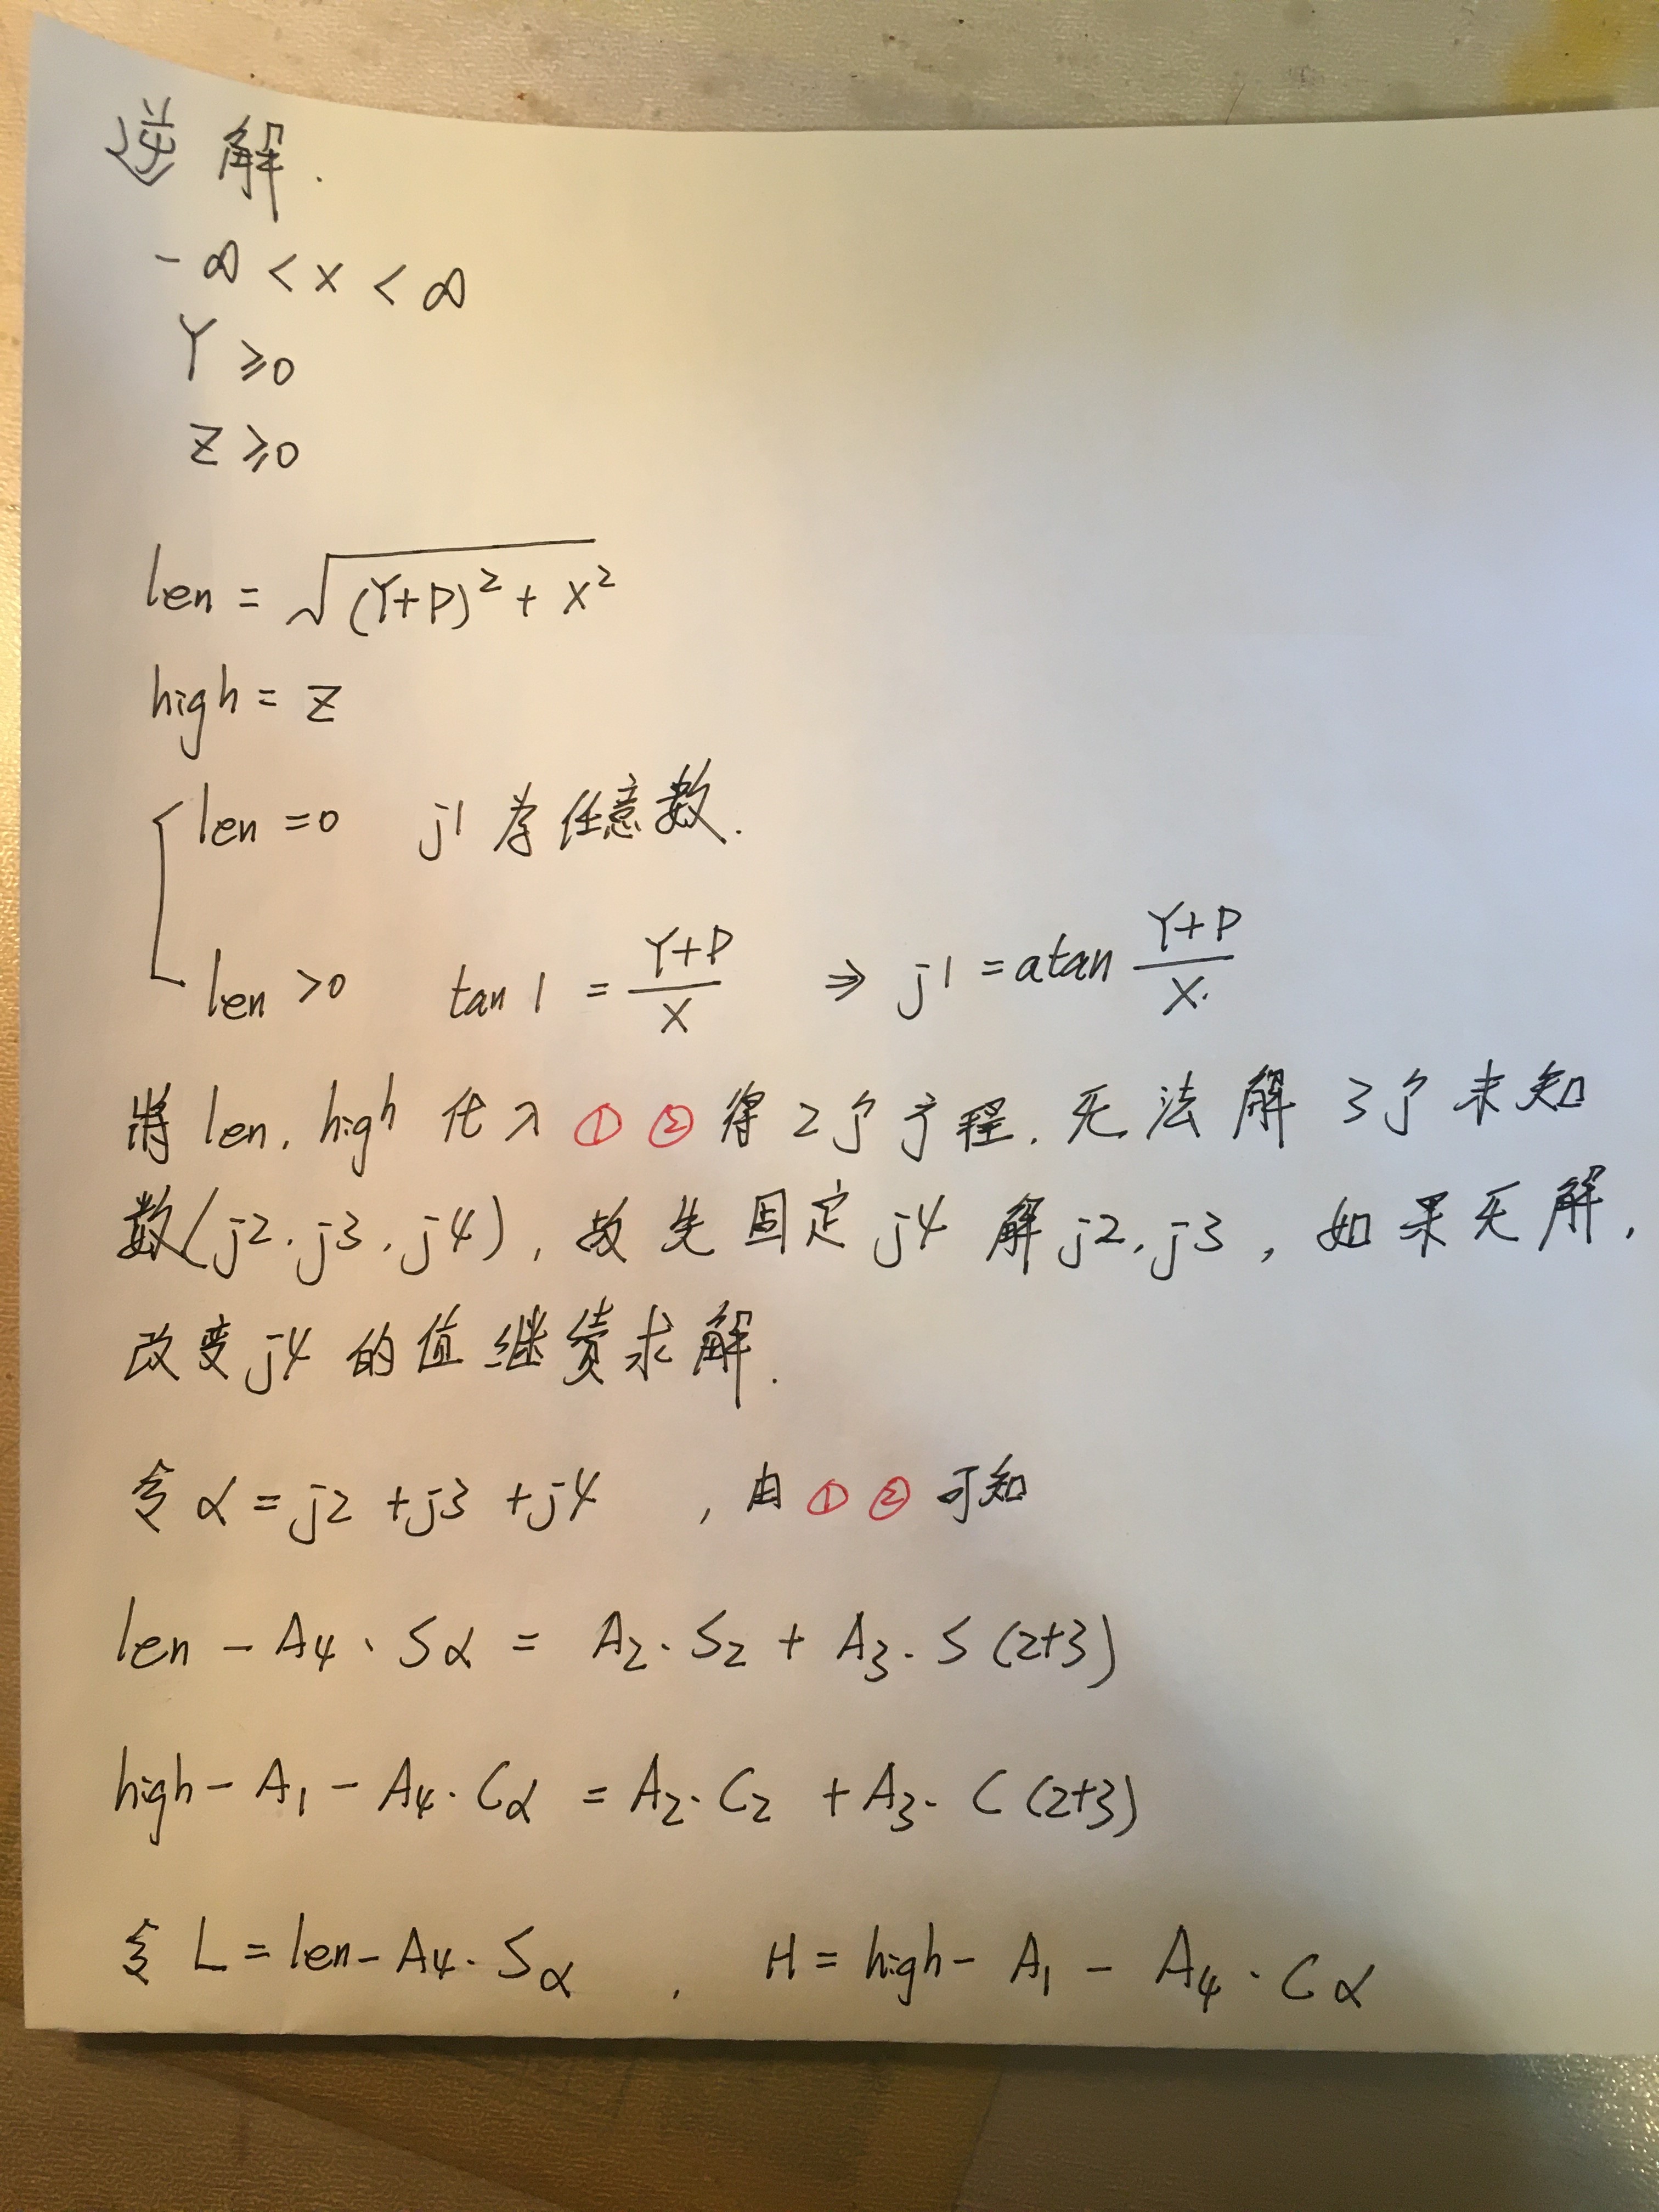 逆解.
-∞ < x < ∞
Y ≥0
Z ≥0
len = √(Y+P)² + X²
high = Z
len =0 j1 为任意数.
len >0 tan 1 = Y+P/X ⇒ j1 = atan Y+P/X.
将 len. high 代入 ① ② 得 2个方程. 无法解 3个未知
数(j2. j3. j4), 故先固定 j4 解 j2. j3, 如果无解.
改变 j4 的值继续求解.
令 α = j2 + j3 + j4 , 由 ① ② 可知
len - A₄ · Sα = A₂ · S₂ + A₃ · S(2+3)
high - A₁ - A₄ · Cα = A₂ · C₂ + A₃ · C(2+3)
令 L = len - A₄ · Sα , H = high - A₁ - A₄ · Cα